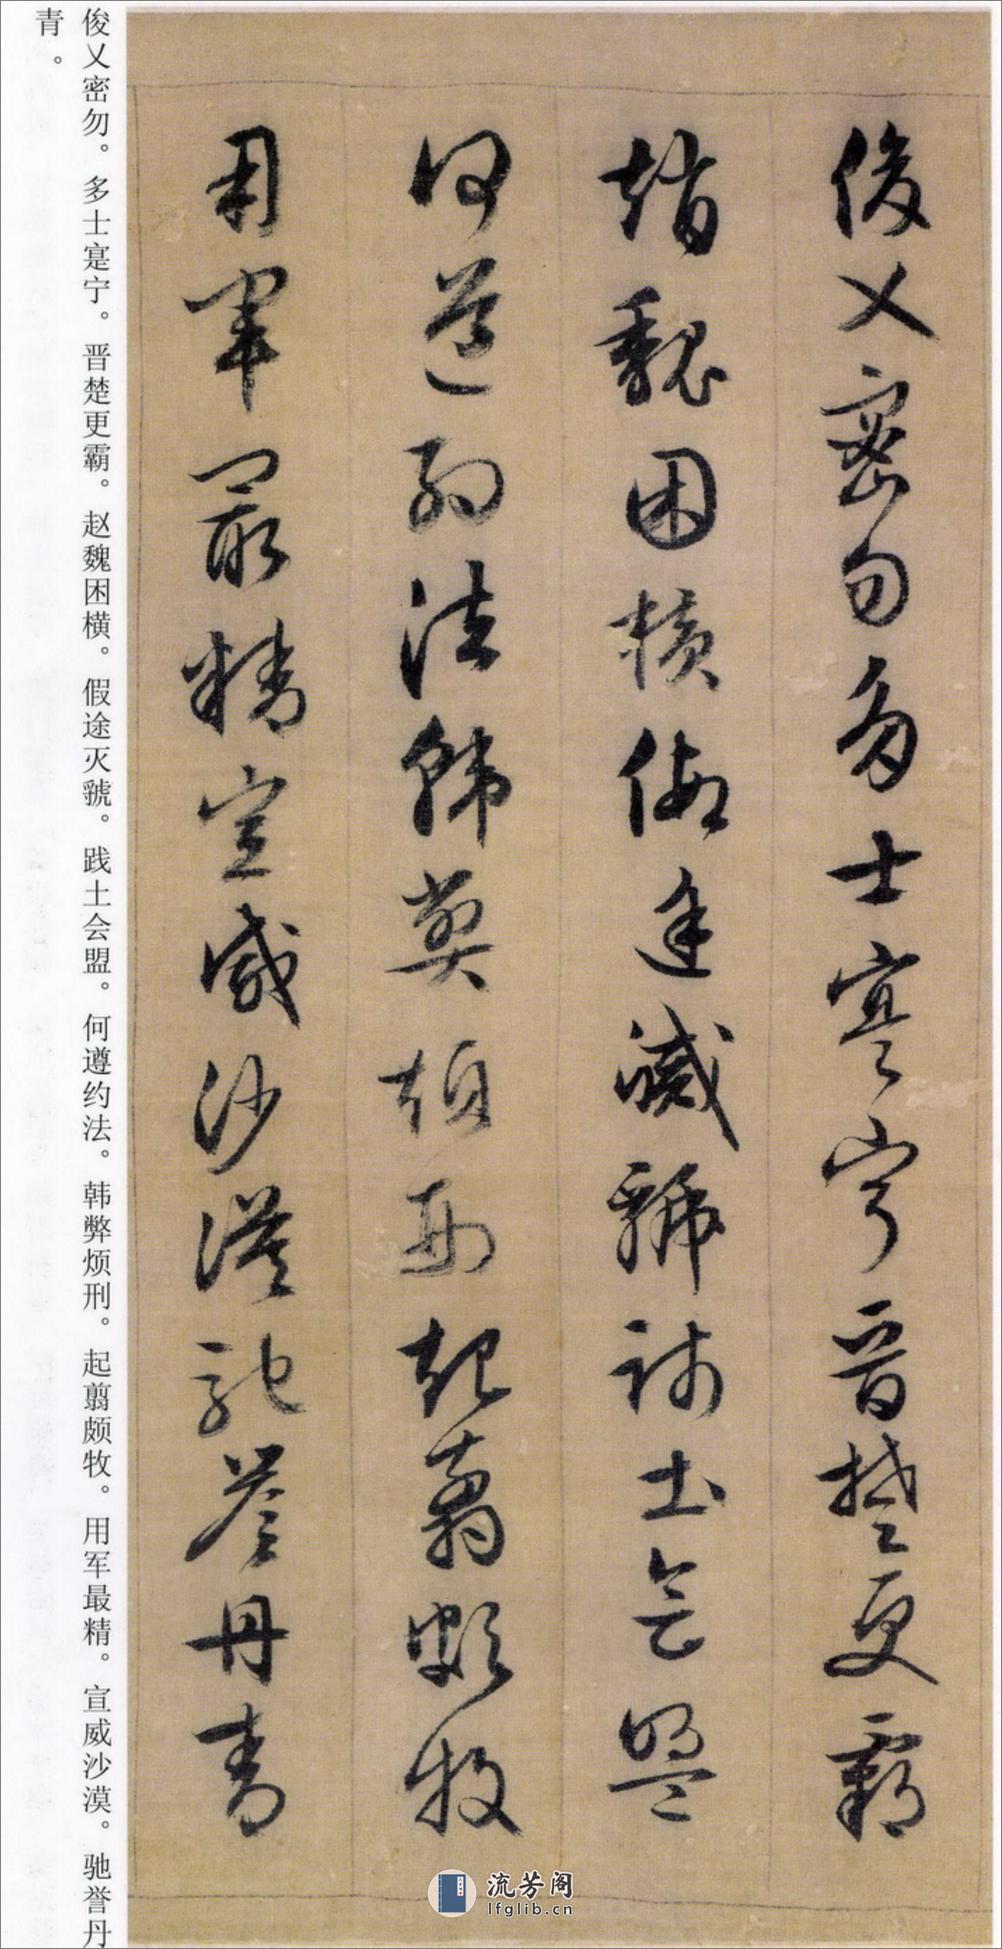 俊乂密勿多士寔寧晉楚更霸
趙魏困橫假途滅虢踐土會盟
何遵約法韓弊煩刑起翦頗牧
用軍最精宣威沙漠馳譽丹青
俊乂密勿。多士寔宁。晋楚更霸。赵魏困横。假途灭虢。践土会盟。何遵约法。韩弊烦刑。起翦颇牧。用军最精。宣威沙漠。驰誉丹
青。
流芳阁
lfglib.cn